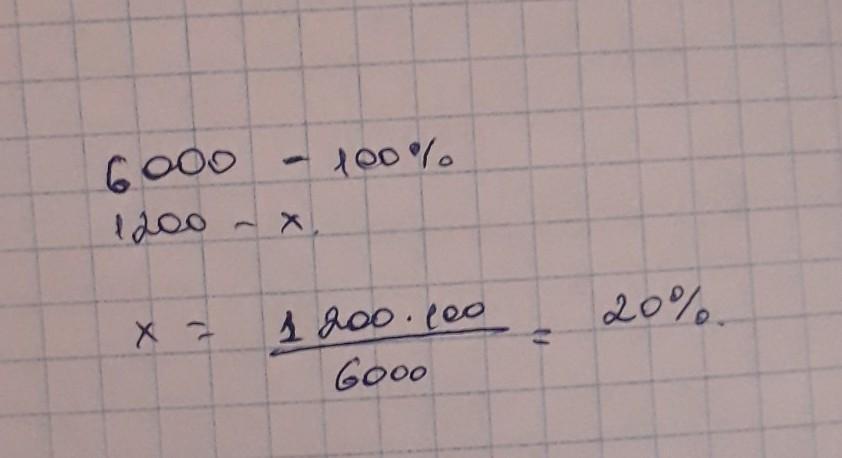 6000 - 100%
1200 - x.
x = 1200·100 / 6000 = 20%.